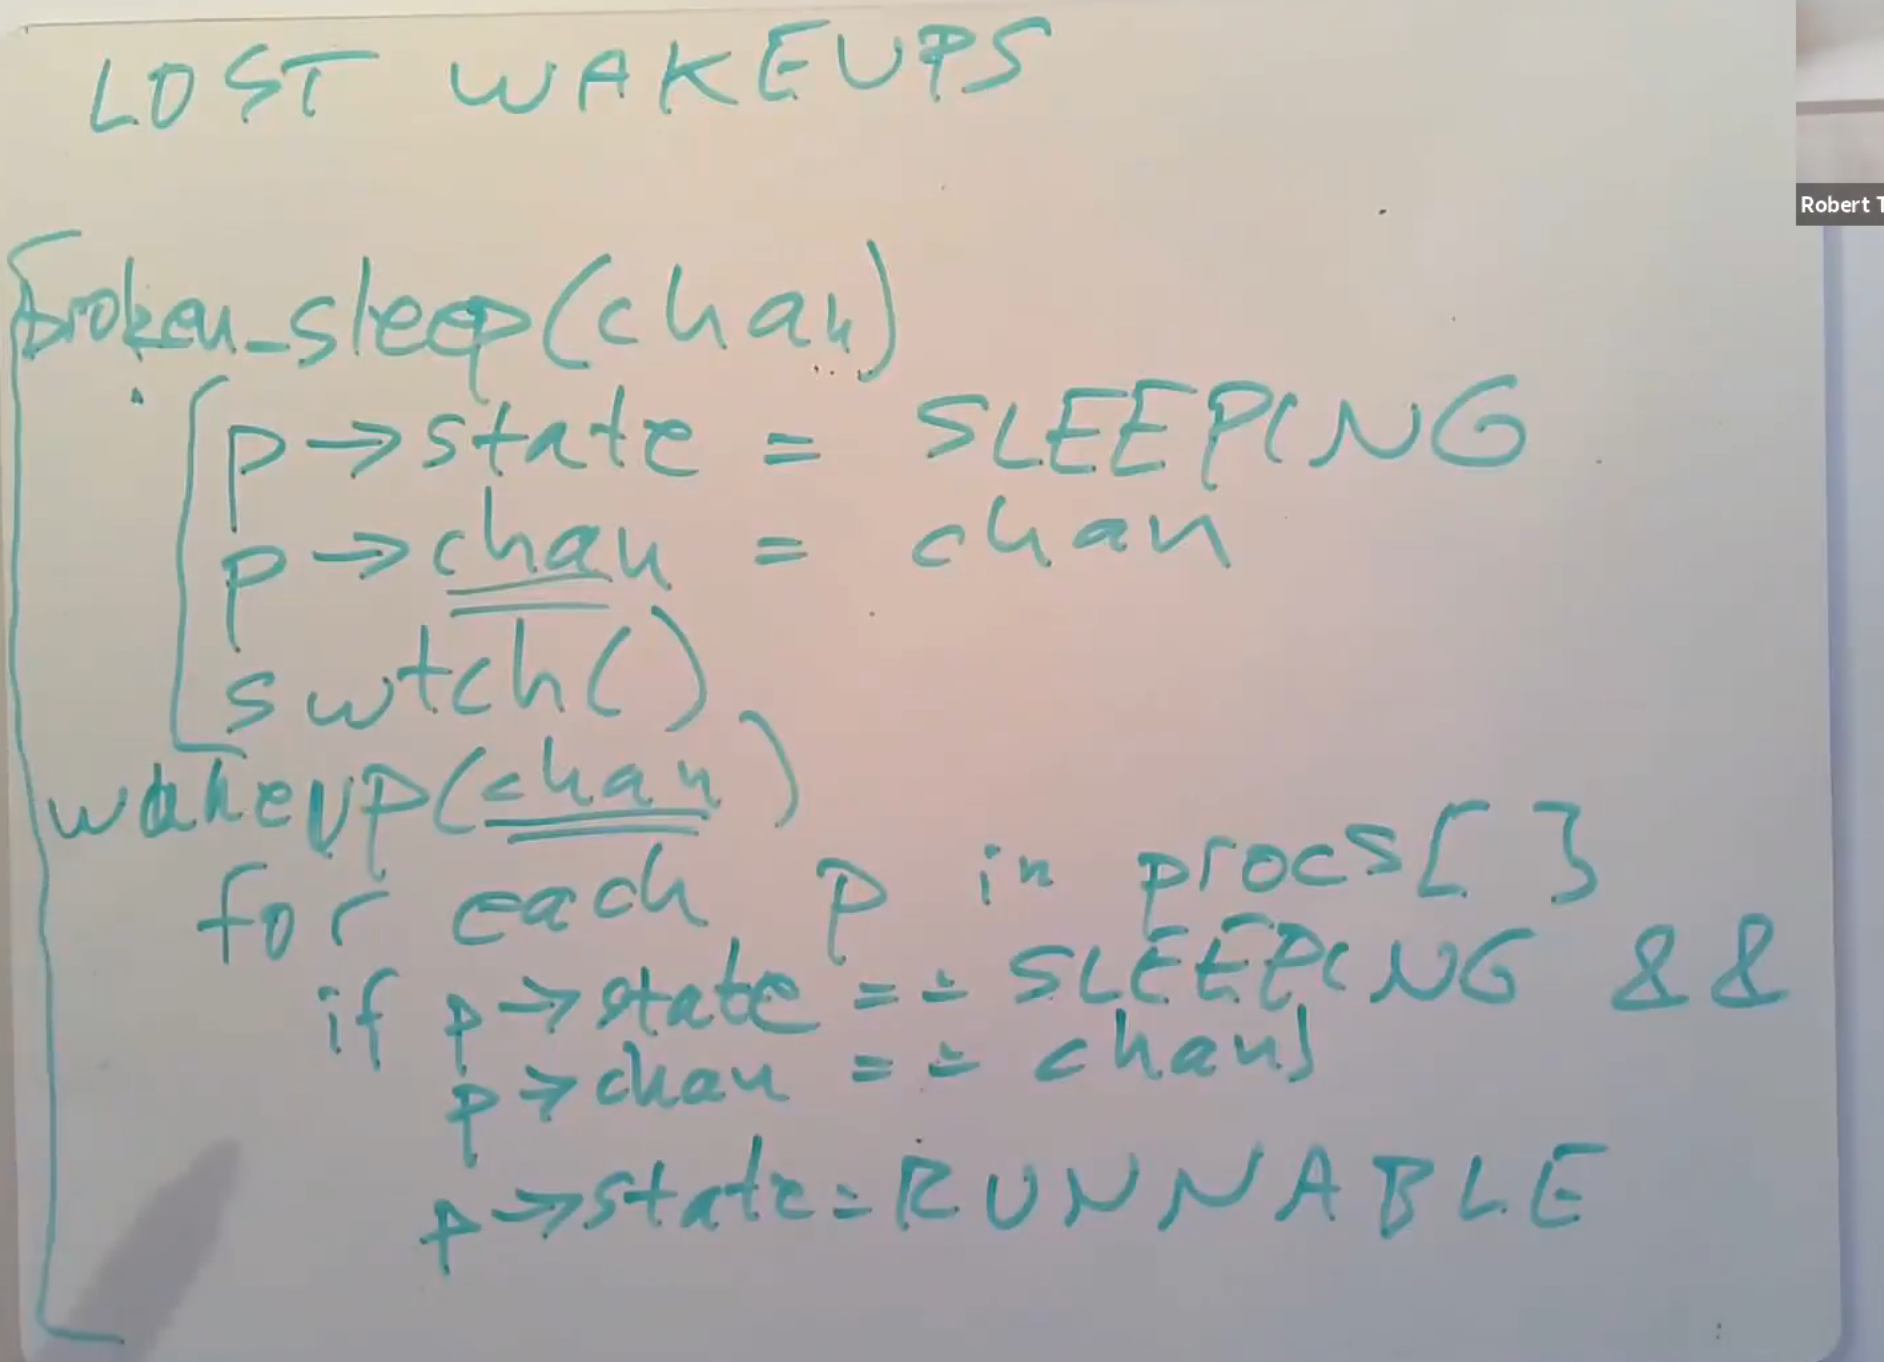 LOST WAKEUPS
Robert T
broken_sleep(chan)
p→state = SLEEPING
p→chan = chan
swtch()
wakeup(chan)
for each p in procs[]
if p→state == SLEEPING &&
p→chan == chan)
p→state=RUNNABLE